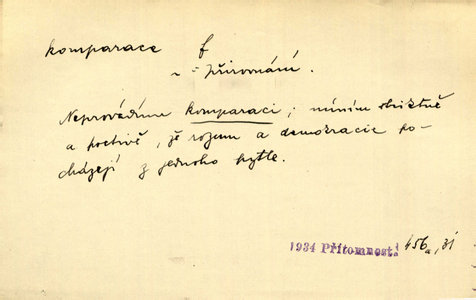 komparace f
~ = přirovnání.
Neprovádím komparaci; míním striktně
a poctivě, že rozum a demokracie po-
cházejí z jednoho pytle.
1934 Přítomnost 456a, 31